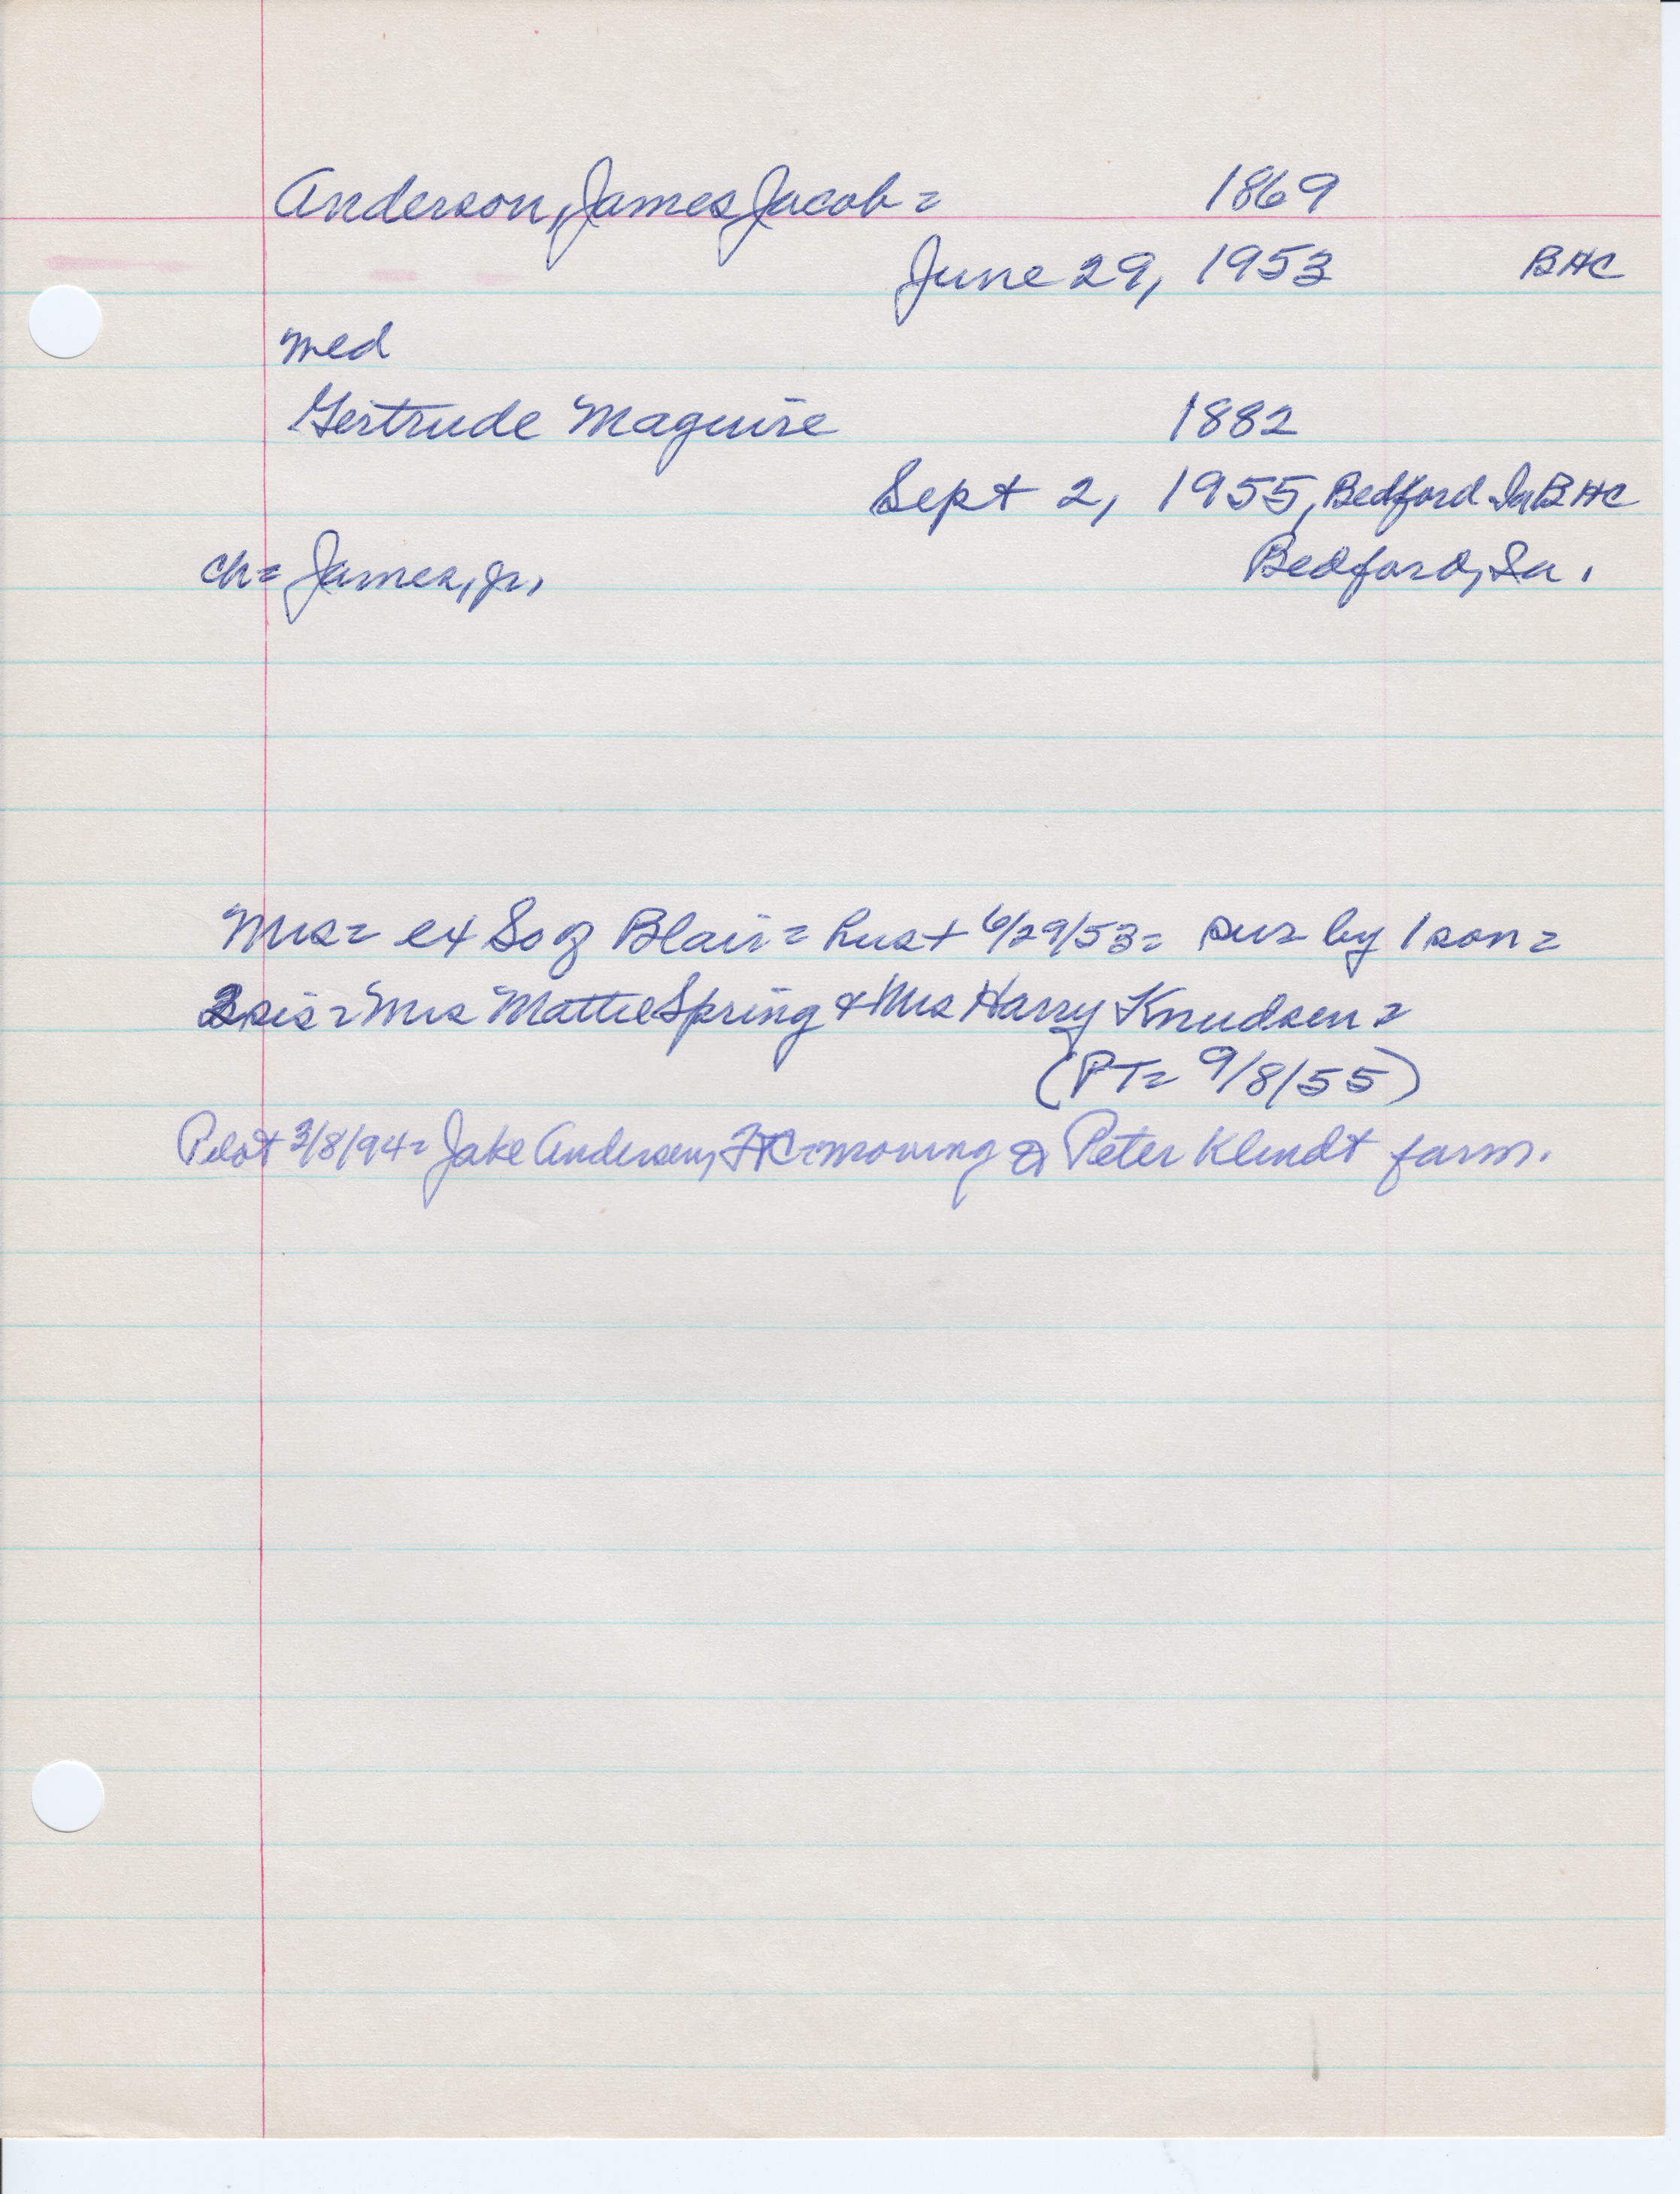 Anderson, James Jacob = 1869
June 29, 1953 BHC
med
Gertrude Maguire 1882
Sept 2, 1955, Bedford Ia BHC
ch= James, jr, Bedford, Ia.
Mrs= ex So of Blair= hus + 6/29/53= sur by 1 son=
2 sis= Mrs Mattie Spring & Mrs Harry Knudsen=
(PT= 9/8/55)
Pilot 3/8/94= Jake Andersen, = moving Peter Klindt farm.